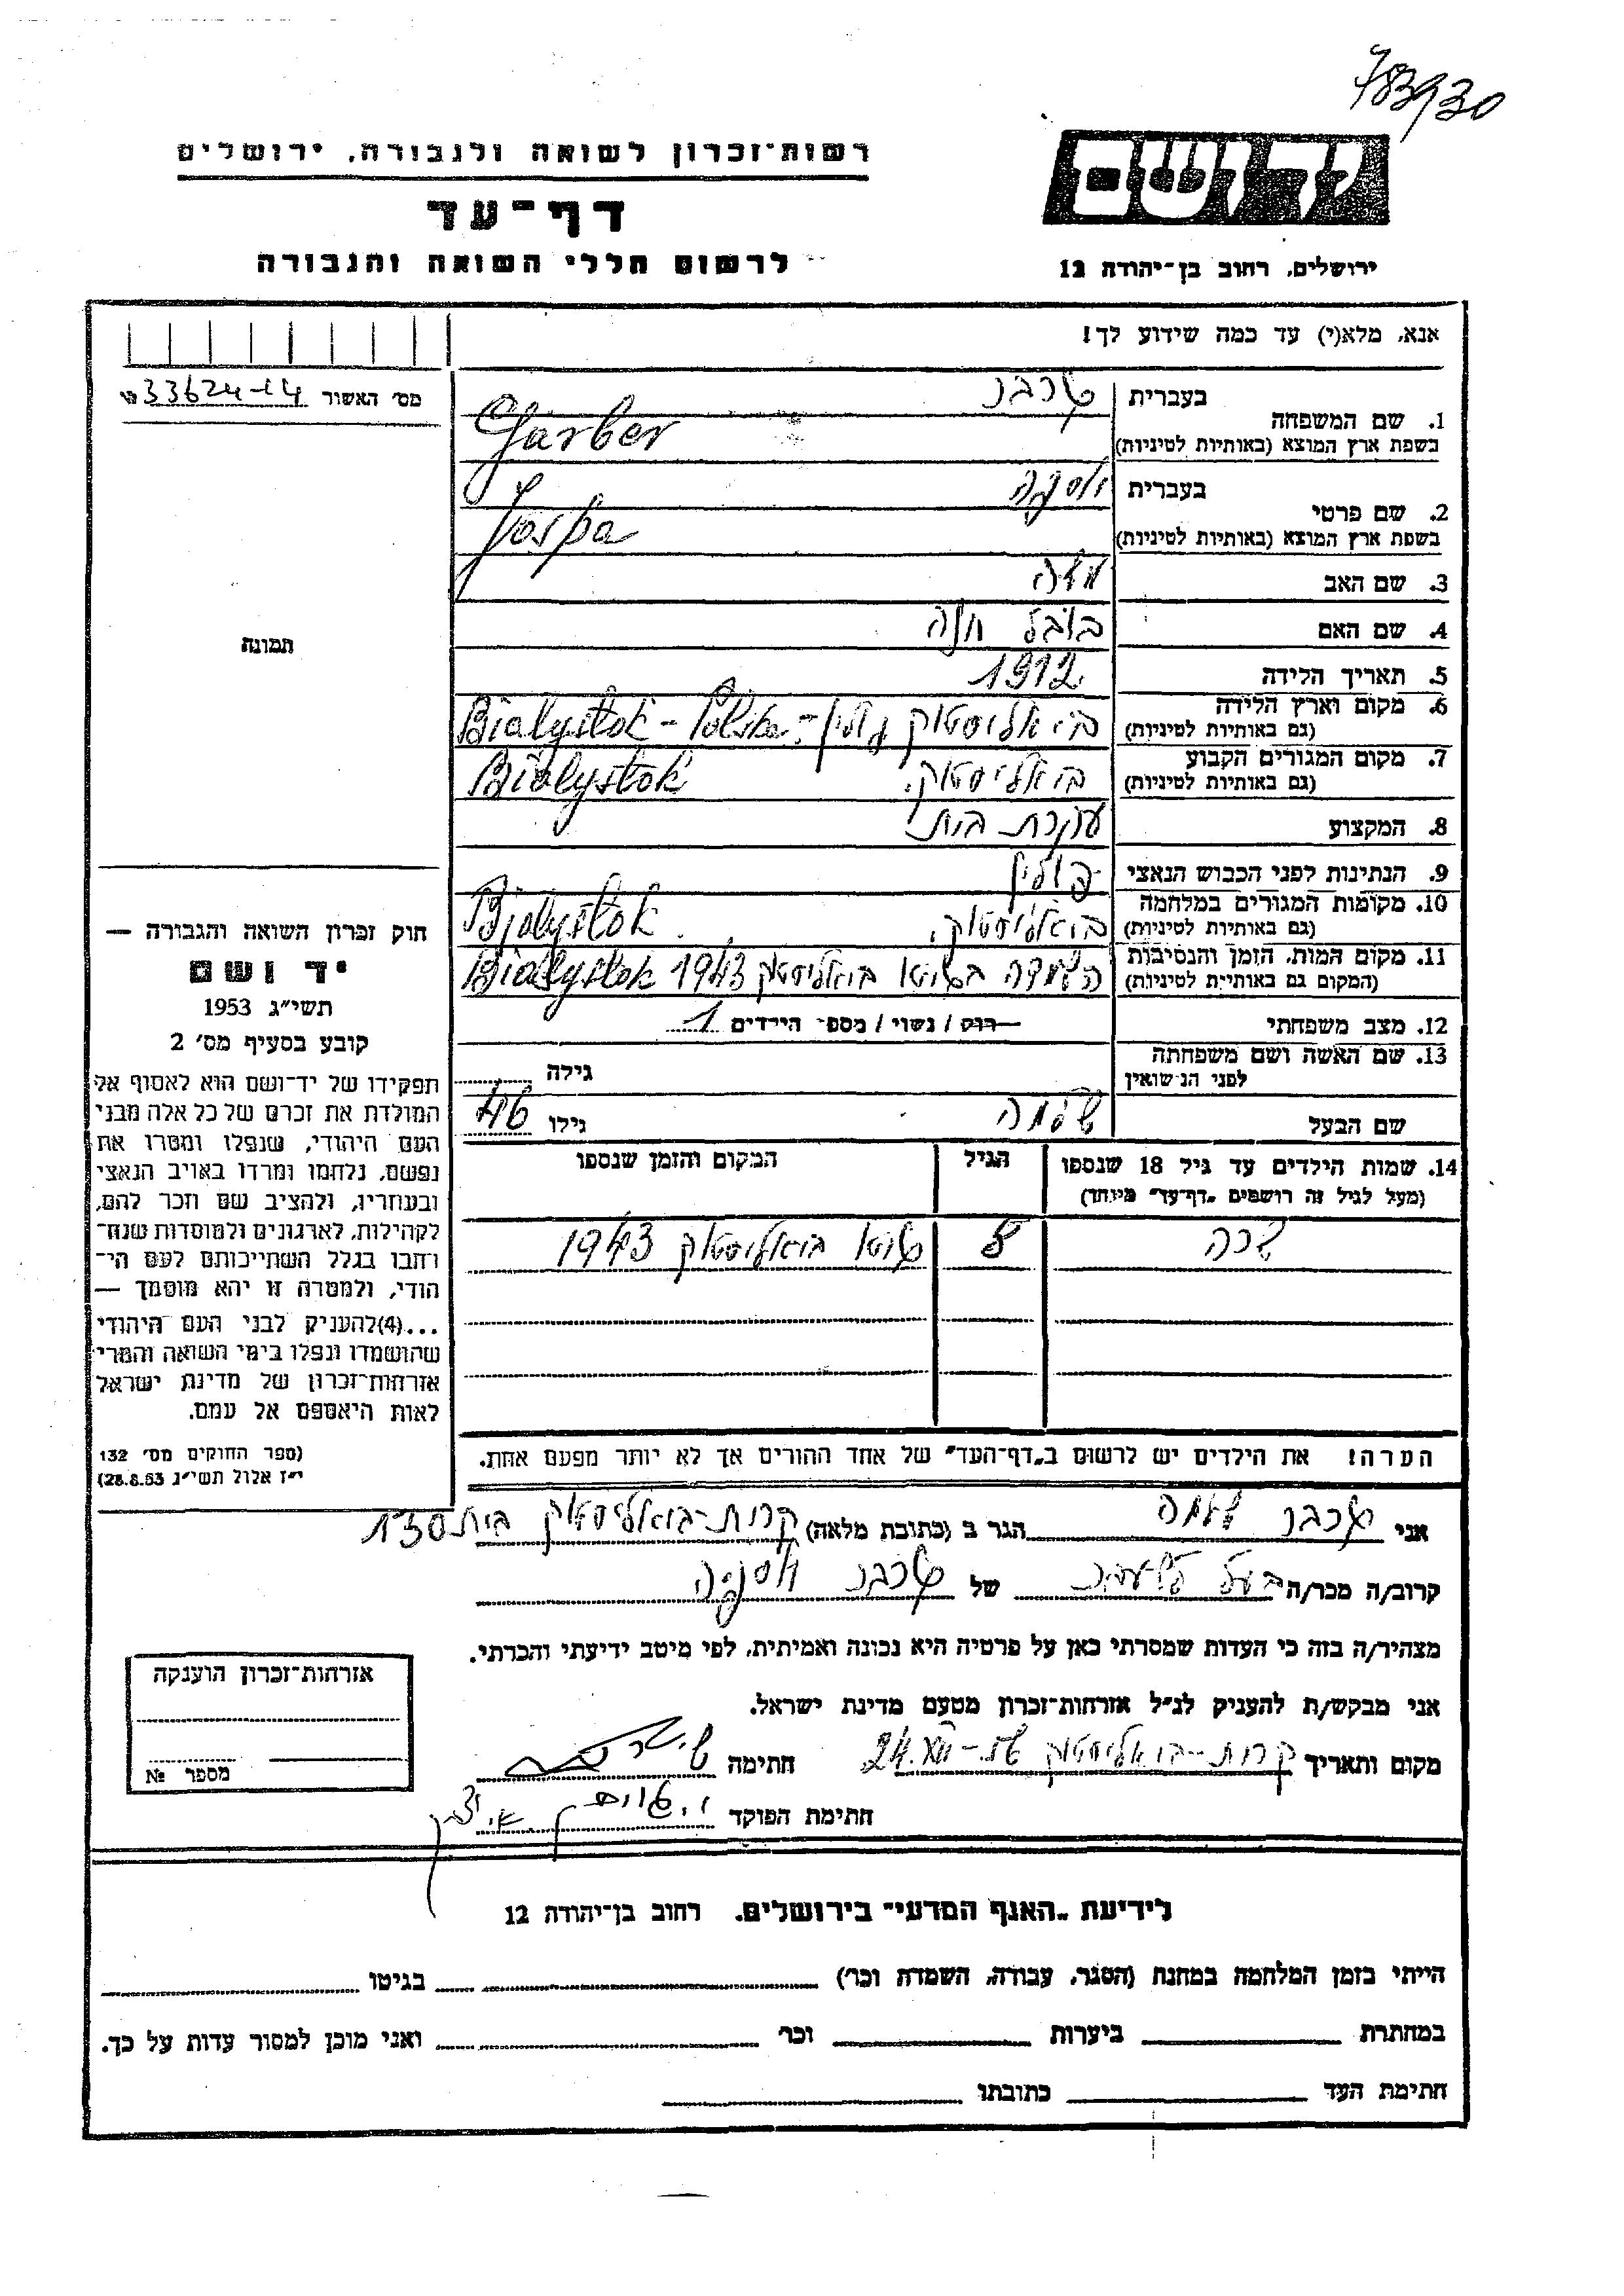 783930
רשות־זכרון לשואה ולגבורה, ירושלים
יד ושם
דף־עד
לרשום חללי השואה והגבורה
ירושלים, רחוב בן־יהודה 12
אנא, מלא(י) עד כמה שידוע לך!
מס׳ האשור 33624-14
1. שם המשפחה
בעברית גרבר
בשפת ארץ המוצא (באותיות לטיניות) Garber
2. שם פרטי
בעברית יוספה
בשפת ארץ המוצא (באותיות לטיניות) Jospa
3. שם האב
4. שם האם חנה
5. תאריך הלידה 1912
6. מקום וארץ הלידה
(גם באותיות לטיניות) ביאליסטוק פולין - Bialystok - Polska
7. מקום המגורים הקבוע
(גם באותיות לטיניות) ביאליסטוק. Bialystok
8. המקצוע עקרת בית
9. הנתינות לפני הכבוש הנאצי פולין
10. מקומות המגורים במלחמה
(גם באותיות לטיניות) ביאליסטוק. Bialystok
11. מקום המות, הזמן והנסיבות
(המקום גם באותיות לטיניות) השמדה בגיטו ביאליסטוק 1943 Bialystok
12. מצב משפחתי רוק / נשוי / מספר הילדים 1
13. שם האשה ושם משפחתה
לפני הנישואין גילה
שם הבעל שלמה גילו 46
14. שמות הילדים עד גיל 18 שנספו
(מעל לגיל זה רושמים "דף־עד" מיוחד)
הגיל
המקום והזמן שנספו
שרה 8 גיטו ביאליסטוק 1943
הערה! את הילדים יש לרשום ב„דף־העד" של אחד ההורים אך לא יותר מפעם אחת.
תמונה
חוק זכרון השואה והגבורה —
יד ושם
תשי״ג 1953
קובע בסעיף מס׳ 2
תפקידו של יד־ושם הוא לאסוף אל
המולדת את זכרם של כל אלה מבני
העם היהודי, שנפלו ומסרו את
נפשם, נלחמו ומרדו באויב הנאצי
ובעוזריו, ולהציב שם וזכר להם,
לקהילות, לארגונים ולמוסדות שנח־
רבו בגלל השתייכותם לעם הי־
הודי, ולמטרה זו יהא מוסמך —
...(4)להעניק לבני העם היהודי
שהושמדו ונפלו בימי השואה והמרי
אזרחות־זכרון של מדינת ישראל
לאות היאספם אל עמם.
(ספר החוקים מס׳ 132
י״ז אלול תשי״ג 28.8.53)
אני גרבר שלמה הגר ב (כתובת מלאה) קרית-ביאליסטוק בית 130
קרוב/ה מכר/ה בעל של גרבר יוספה
מצהיר/ה בזה כי העדות שמסרתי כאן על פרטיה היא נכונה ואמיתית, לפי מיטב ידיעתי והכרתי.
אני מבקש/ת להעניק לנ״ל אזרחות־זכרון מטעם מדינת ישראל.
מקום ותאריך קרית-ביאליסטוק 24.XII-56 חתימה
חתימת הפוקד
אזרחות־זכרון הוענקה
מספר №
לידיעת „האגף המדעי" בירושלים, רחוב בן־יהודה 12
הייתי בזמן המלחמה במחנה (הסגר, עבודה, השמדה וכר׳) בגיטו
במחתרת ביערות וכר׳ ואני מוכן למסור עדות על כך.
חתימת העד כתובתו